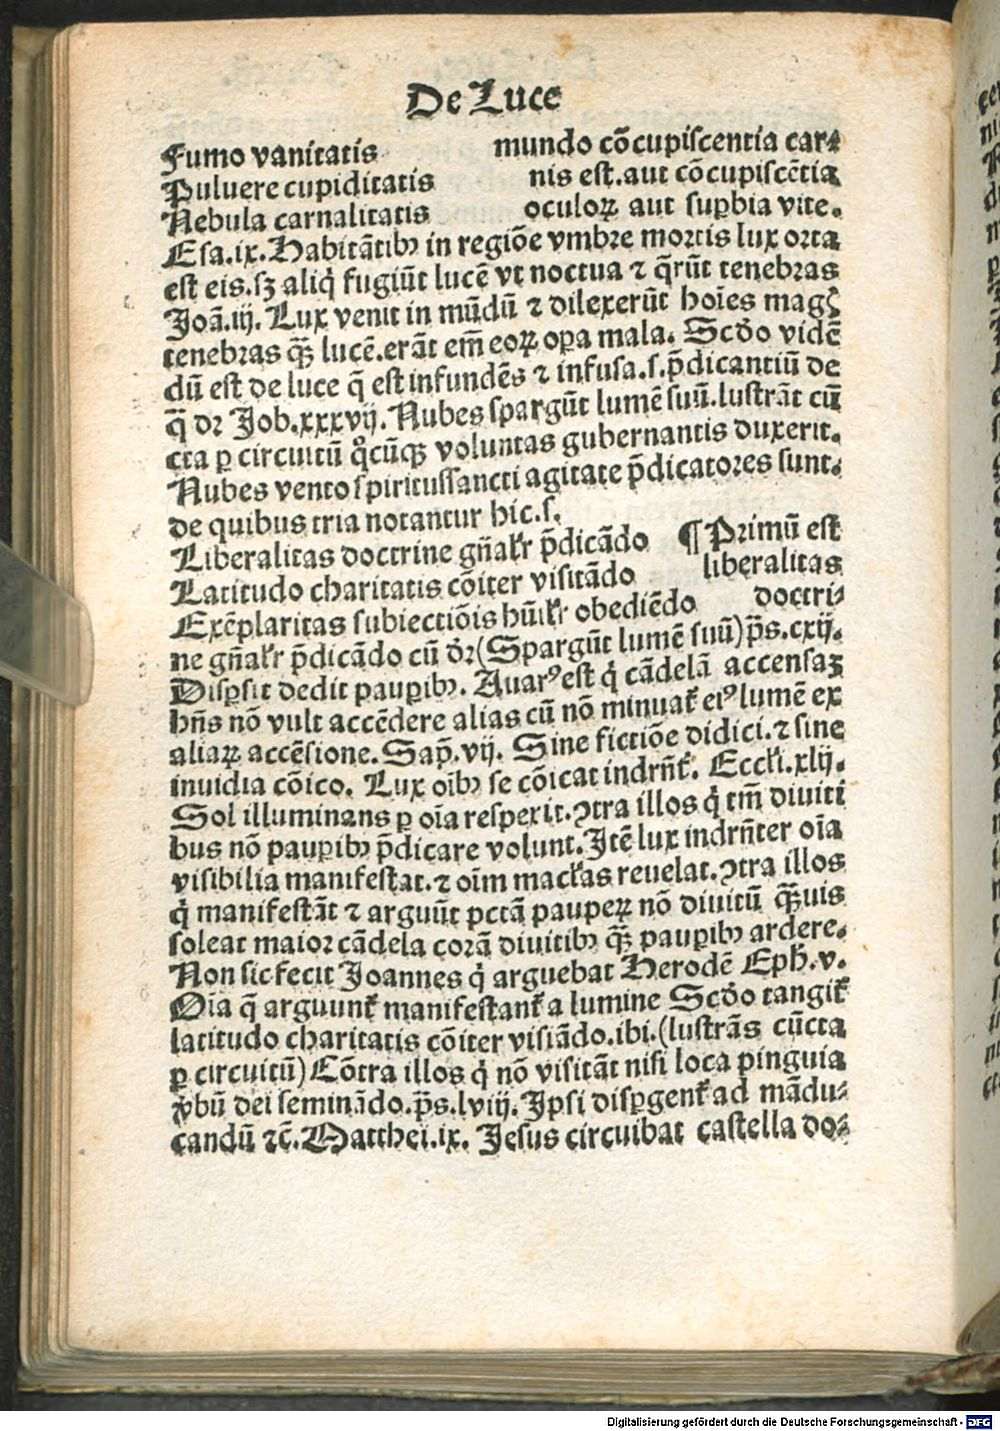 De Luce
Fumo vanitatis mundo cōcupiscentia car⸗
Puluere cupiditatis nis est.aut cōcupiscētia
Nebula carnalitatis oculoꝝ aut suꝑbia vite.
Esa.ix.Habitātibꝫ in regiōe vmbre mortis lux orta
est eis.sꝫ aliq̇ fugiūt lucē vt noctua ⁊ q̄rūt tenebras
Joā.iij. Lux venit in mūdū ⁊ dilexerūt hoīes magꝭ
tenebras qꝫ̄ lucē.erāt em̄ eoꝝ oꝑa mala. Scd̄o vidē
dū est de luce q̄ est infundēs ⁊ infusa.s.p̄dicantiū de
q̄ dꝛ Job.xxxvij. Nubes spargūt lumē suū.lustrāt cū
cta ꝑ circuitū q̊cūqꝫ voluntas gubernantis duxerit.
Nubes vento spiritussancti agitate p̄dicatores sunt.
de quibus tria notantur hic.s.
Liberalitas doctrine gn̄alr̄ p̄dicādo ¶ Primū est
Latitudo charitatis cōiter visitādo liberalitas
Exēplaritas subiectiōis hūilr̄ obediēdo doctri⸗
ne gn̄alr̄ p̄dicādo cū dr̄(Spargūt lumē suū)p̄s.cxij.
Disꝑsit dedit pauꝑibꝫ. Auarꝰ est q̇ cādelā accensaꝫ
hn̄s nō vult accēdere alias cū nō minuat᷑ eiꝰ lumē ex
aliaꝝ accēsione.Sap̄.vij. Sine fictiōe didici.⁊ sine
inuidia cōico. Lux oībꝫ se cōicat indrn̄t᷑. Eccl̄i.xlij.
Sol illuminans ꝑ oīa respexit.ꝯtra illos q̇ tm̄ diuiti
bus nō pauꝑibꝫ p̄dicare volunt.Itē lux indrn̄ter oīa
visibilia manifestat.⁊ oīm macl̄as reuelat.ꝯtra illos
q̇ manifestāt ⁊ arguūt pctā pauperꝝ nō diuitū qꝫ̄uis
soleat maior cādela corā diuitibꝫ qꝫ̄ pauꝑibꝫ ardere.
Non sic fecit Joannes q̇ arguebat Herodē Eph̄.v.
Oīa q̄ arguunt᷑ manifestant᷑ a lumine Scd̄o tangit᷑
latitudo charitatis cōiter visiādo.ibi.(lustrās cūcta
ꝑ circuitū)Cōtra illos q̇ nō visitāt nisi loca pinguia
v̄bū dei seminādo.p̄s.lviij.Ipsi disꝑgent᷑ ad mādu⸗
candū ⁊c̄.Matthei.ix. Jesus circuibat castella do⸗
Digitalisierung gefördert durch die Deutsche Forschungsgemeinschaft - DFG